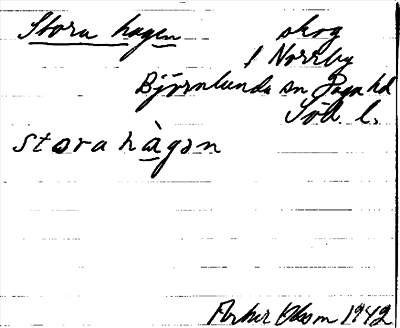 Stora hagen skog
1 Norrby
Björnlunda sn Daga hd
Söd. l.
stora hàgən
Olsson 1942